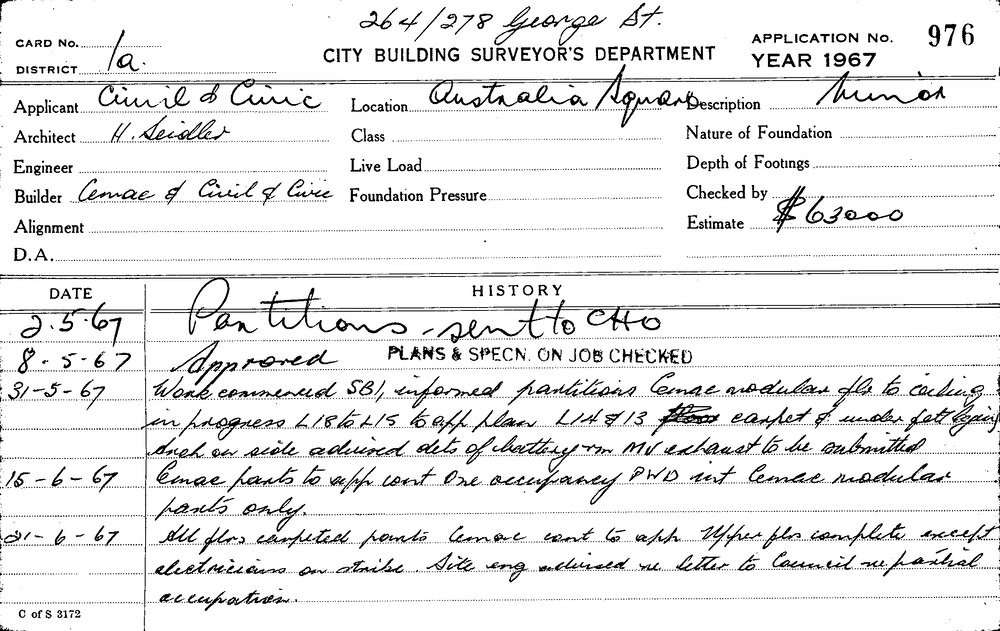 264/278 George St.
CARD No.
CITY BUILDING SURVEYOR'S DEPARTMENT
APPLICATION No. 976
DISTRICT 1a.
YEAR 1967
Applicant Civil & Civic Location Australia Square Description Minor
Architect H. Seidler Class Nature of Foundation
Engineer Live Load Depth of Footings
Builder Cemac & Civil & Civic Foundation Pressure Checked by
Alignment Estimate $63000
D.A.
DATE HISTORY
2.5.67 Partitions - sent to CHO
8-5-67 Approved PLANS & SPECN. ON JOB CHECKED
31-5-67 Work commenced SB1, informed partitions Cemac modular flr to ceiling
in progress L18 to L15 to app plan L14 & 13 carpet & under felt laying
Arch on site advised dets of battery rm MV exhaust to be submitted
15-6-67 Cemac parts to app cont One occupancy PWD int Cemac modular
parts only.
21-6-67 All flrs carpeted parts Cemac cont to app Upper flrs complete except
electricians on strike. Site eng advised re letter to Council re partial
occupation.
C of S 3172